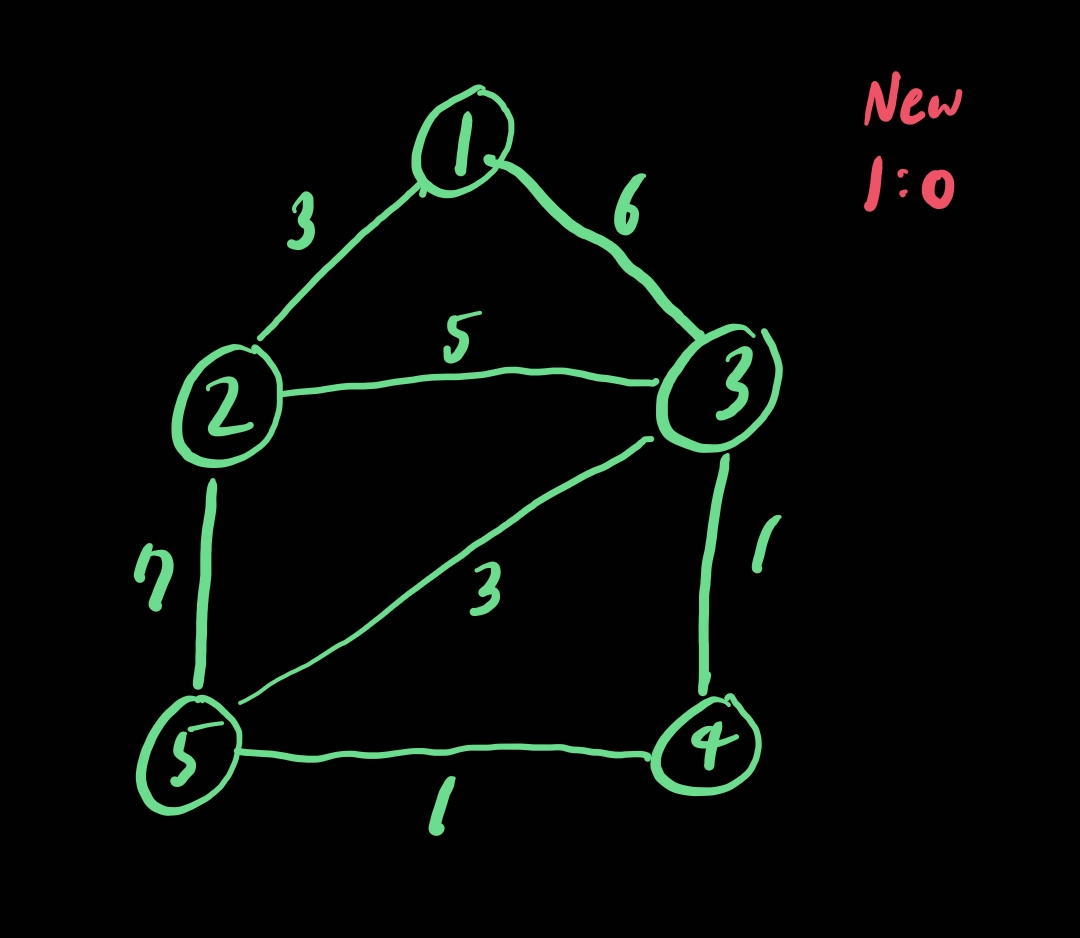 New
1:0
1
3
6
5
2
3
7
3
1
5
4
1